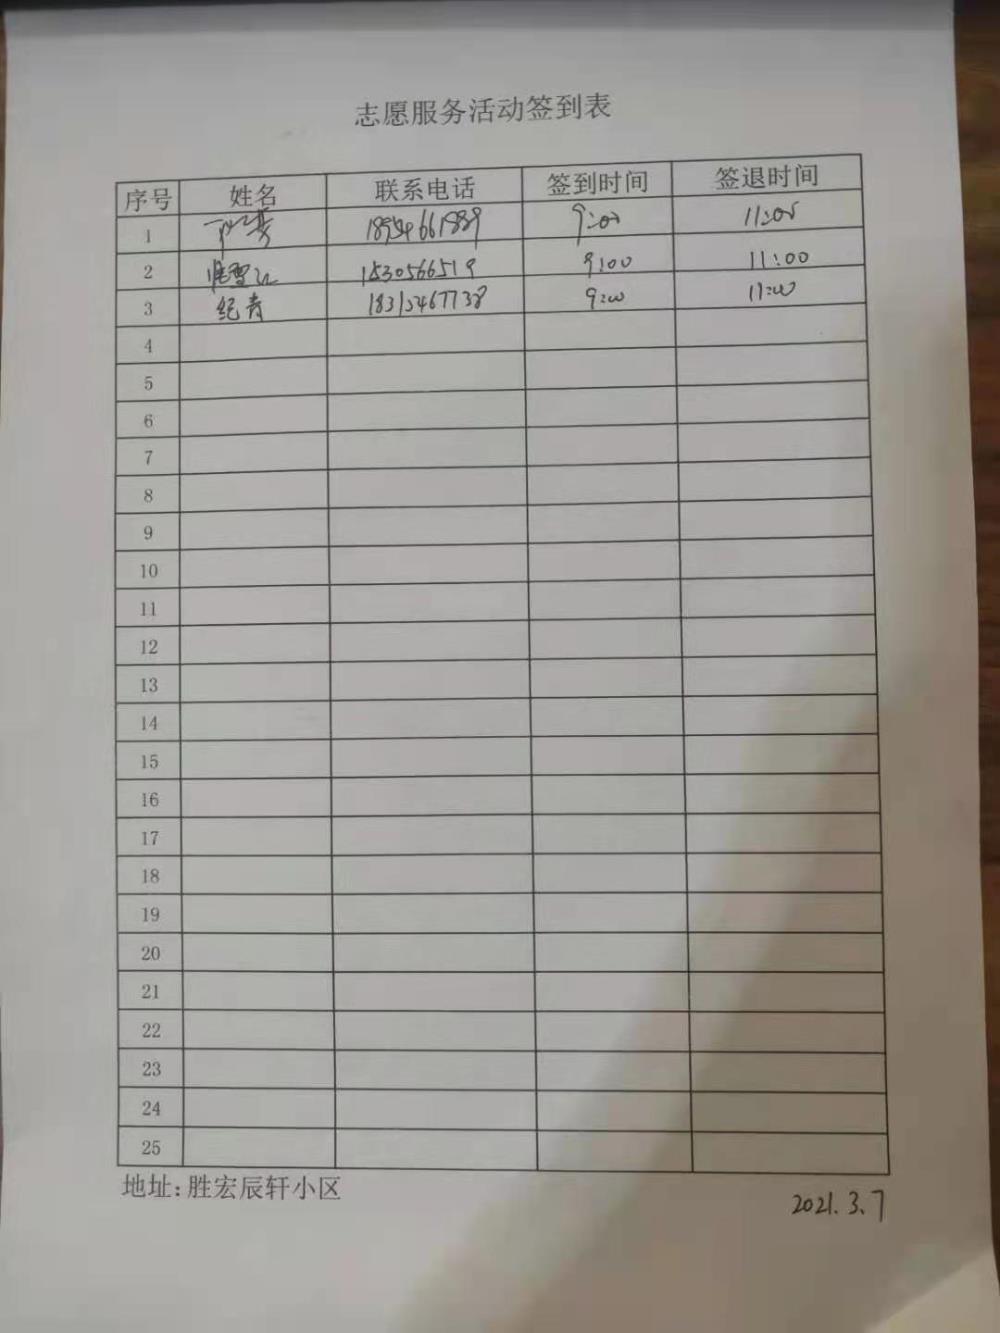 志愿服务活动签到表
序号 姓名 联系电话 签到时间 签退时间
1 18954661889 9:00 11:00
2 15305466519 9:00 11:00
3 纪青 18315467738 9:00 11:00
4
5
6
7
8
9
10
11
12
13
14
15
16
17
18
19
20
21
22
23
24
25
地址:胜宏辰轩小区
2021.3.7